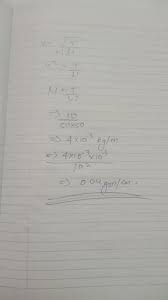 v = √T/μ
v² = T/μ
μ = T/v²
⇒ 10/50×50
⇒ 4×10⁻³ kg/m
⇒ 4×10⁻³×10³/10²
⇒ 0.04 gm/cm.